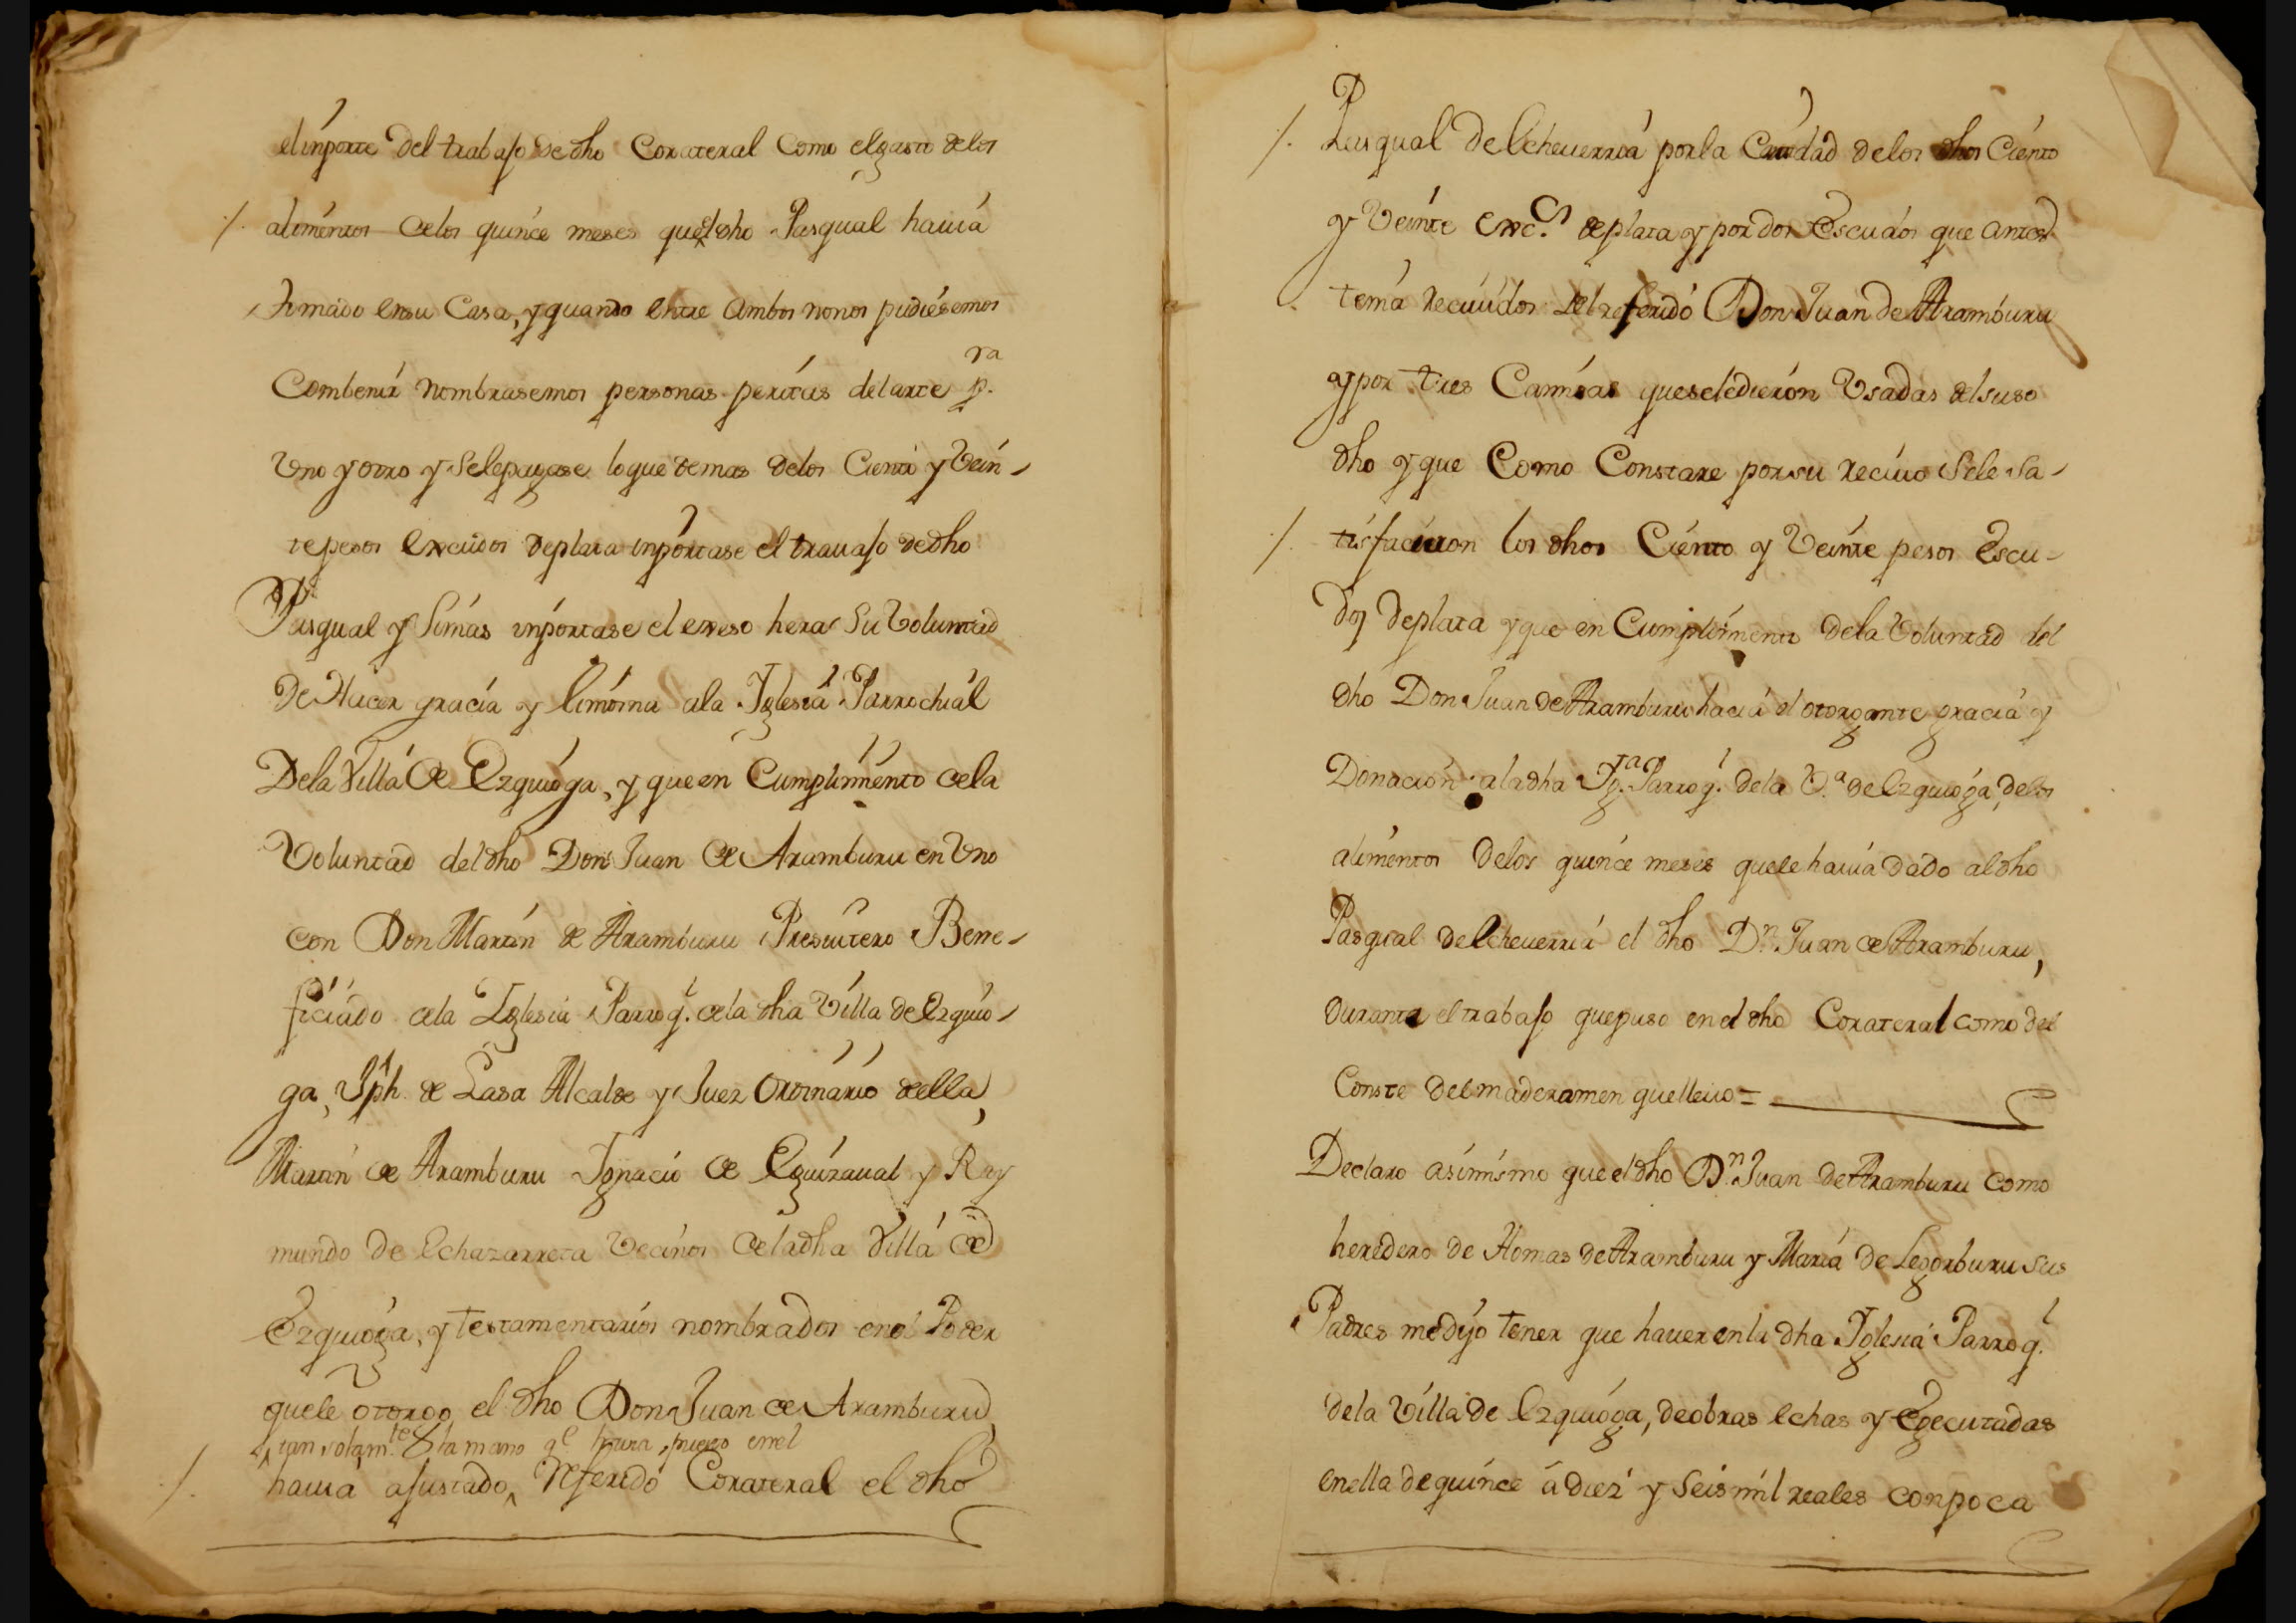 el inporte del trabajo de dho Corateral Como el gasto de los
alimentos de los quince meses que el dho Pasqual hauia
tomado en su Casa, y quando entre ambos nonos pudiesemos
Combenir nombrasemos personas peritas del arte p.ra
Uno y otro y sele pagase lo que de mas delos Ciento y Vein-
te pesos excudos de plata inportase el trauajo de dho
Pasqual y Si mas inportase el exeso hera Su Voluntad
De Hacer gracia y limosna ala Iglesia Parrochial
Dela Villa de Ezquioga, y que en Cumplimiento dela
Voluntad del dho Don Juan de Aramburu en Uno
con Don Martin de Aramburu Presuitero Bene-
ficiado dela Iglesia Parroq.l dela dha Villa de Ezquio-
ga, Jph. de Lasa Alcalde y Juez Ordinario della,
Martin de Aramburu Ignacio de Eguizaual y Ray
mundo de Echazarreta Vecinos dela dha Villa de
Ezquioga, y testamentarios nombrados en el Poder
que le otorgo el dho Don Juan de Aramburu
tan solam.te la mano q.e puso en el
hauia ajustado, Referido Corateral el dho
Pasqual de Echeuerria por la Cantdad delos dhos Ciento
y Veinte exc.s de plata y por dos Escudos que antes
tenia Reciuidos del referido Don Juan de Aramburu
y por tres Camisas que sele dieron Usadas del suso
dho y que Como Constare por su reciuo Sele Sa-
tisfacieron los dhos Ciento y Veinte pesos Escu-
dos de plata y que en Cumplimiento dela Voluntad del
dho Don Juan de Aramburu hacia el otorgante gracia y
Donacion ala dha Ig.ia Parroq.l dela V.a de Ezquioga, delos
alimentos delos quince meses que le hauia dado al dho
Pasqual de Echeuerria el dho D.n Juan de Aramburu,
durante el trabajo que puso en el dho Corateral como del
Coste del maderamen que lleuo =
Declaro asimismo que el dho D.n Juan de Aramburu como
heredero de Thomas de Aramburu y Maria de Legorburu sus
Padres me dijo tener que hauer en la dha Iglesia Parroq.l
dela Villa de Ezquioga, de obras echas y Egecutadas
en ella de quince á diez y Seis mil reales con poca